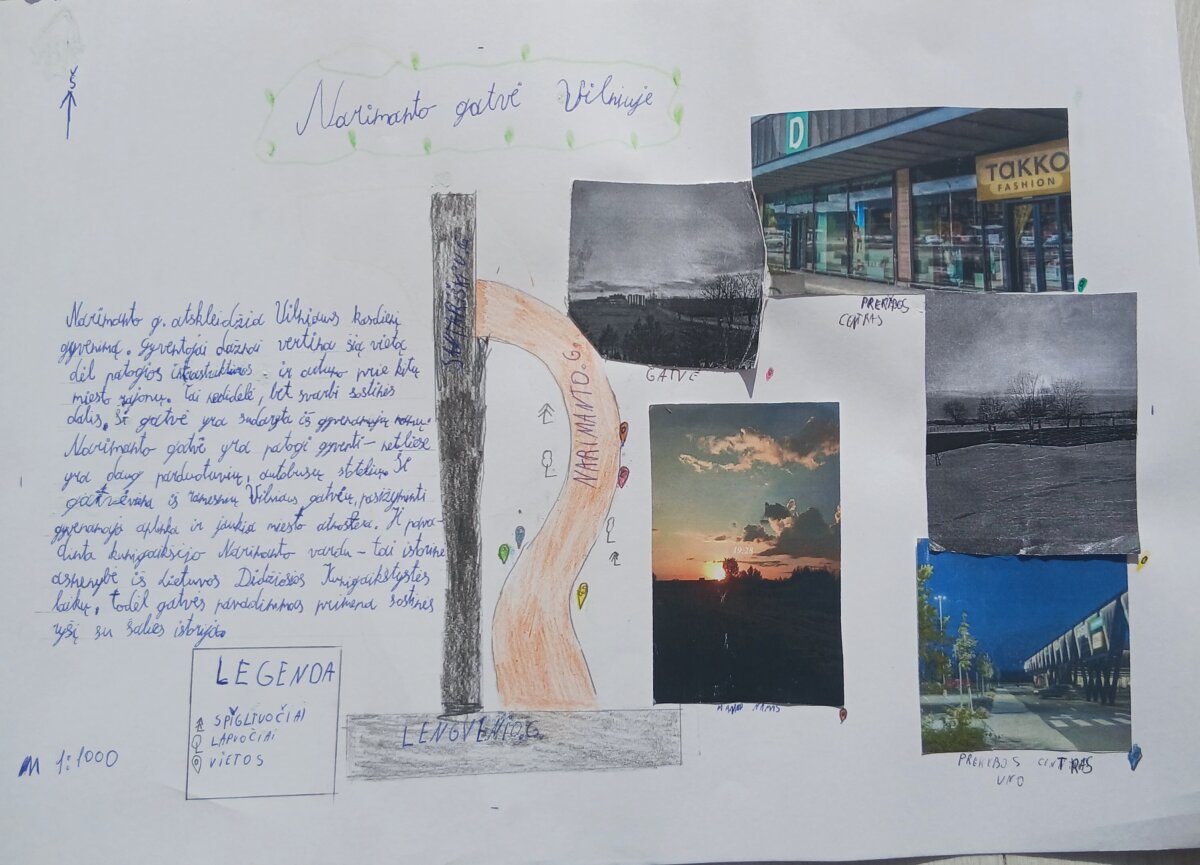 Š
Narimanto gatvė Vilniuje
D
TAKKO
FASHION
PREKYBOS
CENTRAS
GATVĖ
SANTARIŠKIŲ G.
NARIMANTO.G.
Narimanto g. atskleidžia Vilniaus kasdienį
gyvenimą. Gyventojai dažnai vertina šią vietą
dėl patogios infrastruktūros ir artumo prie kitų
miesto rajonų. Tai nedidelė, bet svarbi sostinės
dalis. Ši gatvė yra sudaryta iš gyvenamųjų namų.
Narimanto gatvė yra patogi gyventi - netoliese
yra daug parduotuvių, autobusų stotelių. Ši
gatvė viena iš ramesnių Vilniaus gatvių, pasižyminti
gyvenamąja aplinka ir jaukia miesto atmosfera. Ji pava-
dinta kunigaikščio Narimanto vardu - tai istorinė
asmenybė iš Lietuvos Didžiosios Kunigaikštystės
laikų, todėl gatvės pavadinimas primena sostinės
ryšį su šalies istorija.
19:28
NAMAS
LEGENDA
SPYGLIUOČIAI
LAPUOČIAI
VIETOS
M 1:1000
LENGVENIO.G.
PREKYBOS CENTRAS
UNO